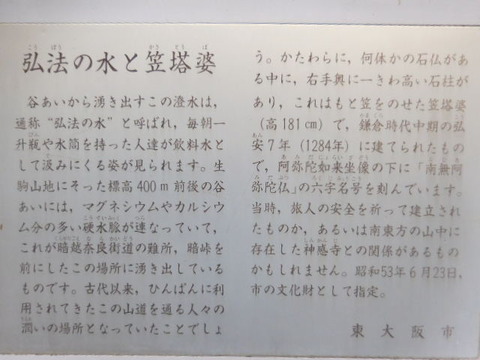 弘法の水と笠塔婆
谷あいから湧き出すこの澄水は,
通称“弘法の水”と呼ばれ, 毎朝一
升瓶や水筒を持った人達が飲料水と
して汲みにくる姿が見られます。生
駒山地にそった標高400m前後の谷
あいには, マグネシウムやカルシウ
ム分の多い硬水脈が連なっていて,
これが暗越奈良街道の難所, 暗峠を
前にしたこの場所に湧き出している
ものです。古代以来, ひんぱんに利
用されてきたこの山道を通る人々の
潤いの場所となっていたことでしょ
う。かたわらに, 何体かの石仏があ
る中に, 右手奥に一きわ高い石柱が
あり, これはもと笠をのせた笠塔婆
(高181cm)で, 鎌倉時代中期の弘
安7年(1284年)に建てられたもの
で, 阿弥陀如来坐像の下に「南無阿
弥陀仏」の六字名号を刻んでいます。
当時, 旅人の安全を祈って建立され
たものか, あるいは南東方の山中に
存在した神感寺との関係があるもの
かもしれません。昭和53年6月23日,
市の文化財として指定。
東大阪市